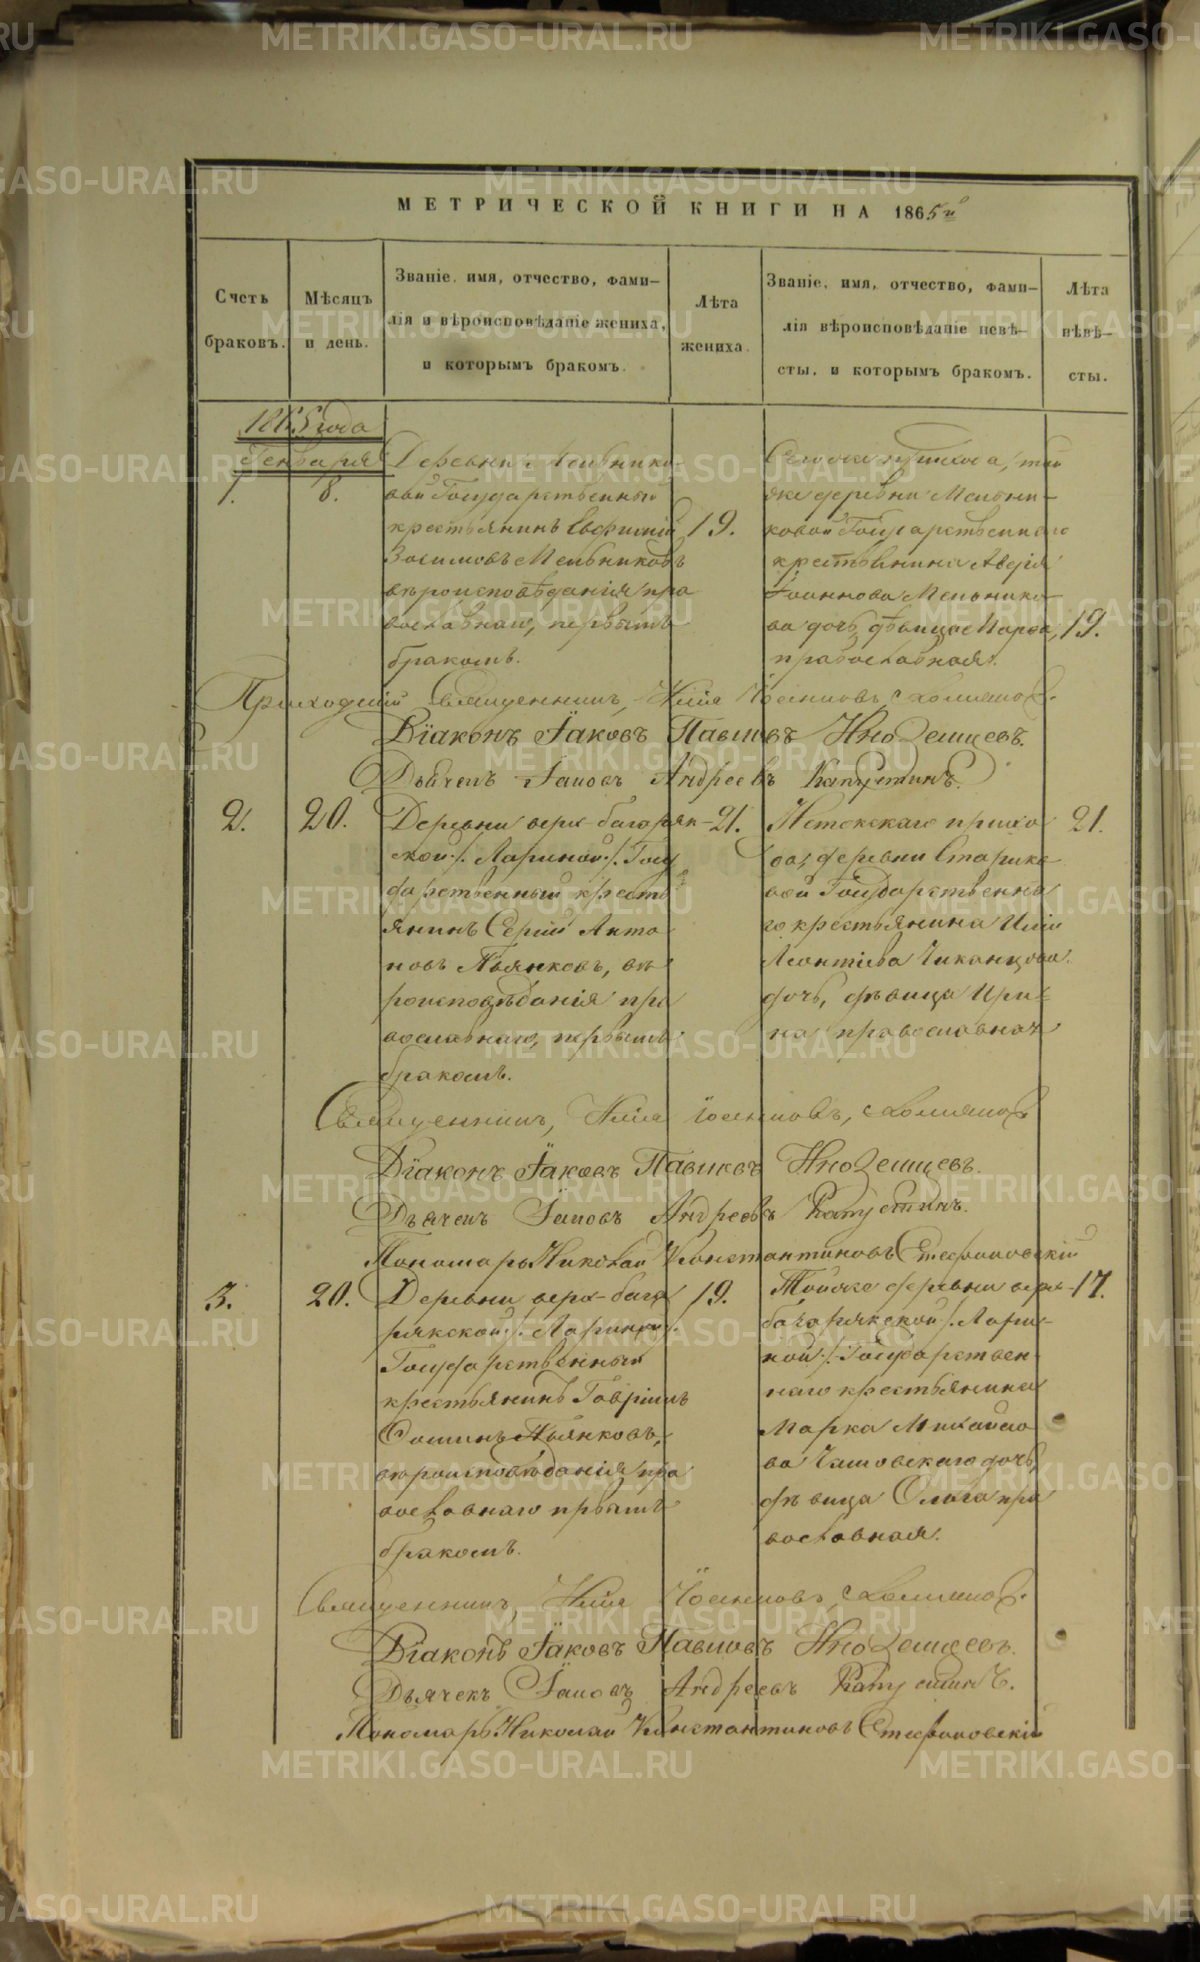 МЕТРИЧЕСКОЙ КНИГИ НА 1865й
Счетъ браковъ.
Мѣсяцъ и день.
Званіе, имя, отчество, фами-
лія и вѣроисповѣданіе жениха,
и которымъ бракомъ.
Лѣта жениха.
Званіе, имя, отчество, фами-
лія вѣроисповѣданіе невѣ-
сты, и которымъ бракомъ.
Лѣта невѣ-
сты.
1865 года
Генваря
1.
8.
Деревни Мельнико-
вой Государственный
крестьянинъ Евфимій
Зосимовъ Мельниковъ
вѣроисповѣданія пра
вославнаго, первымъ
бракомъ.
19.
Сего же прихода, той
же деревни Мельни-
ковой Государственнаго
крестьянина
Іоаннова Мельнико-
ва дочь, дѣвица Марѳа,
православная.
19.
Приходскій Священникъ, Илія
Діаконъ Іаковъ Павловъ Иноземцевъ.
Дьячекъ Іаковъ Андреевъ Капустинъ.
2.
20.
Деревни верх-багаряк-
ской /. Лариной /. Госу
дарственный кресть
янинъ Сергій Анто
новъ Пьянковъ, вѣ
роисповѣданія пра
вославнаго, первымъ
бракомъ.
21.
прихо
да, деревни Старико
вой Государственна
го крестьянина Иліи
Леонтіева
дочь, дѣвица Ири-
на православная
21.
Священникъ, Илія
Діаконъ Іаковъ Павловъ Иноземцевъ.
Дьячекъ Іаковъ Андреевъ Капустинъ.
Пономарь Николай Константиновъ Стефановскій
3.
20.
Деревни верх-бага
рякской /. Лариной /.
Государственный
крестьянинъ Гавріилъ
Ѳоминъ Пьянковъ,
вѣроисповѣданія пра
вославнаго првымъ
бракомъ.
19.
Той же деревни верх-
багарякской /. Лари-
ной /. Государствен-
наго крестьянина
Марка Михайло
ва дочь,
дѣвица Ольга пра
вославная.
17.
Священникъ, Илія
Діаконъ Іаковъ Павловъ Иноземцевъ.
Дьячекъ Іаковъ Андреевъ Капустинъ.
Пономарь Николай Константиновъ Стефановскій
METRIKI.GASO-URAL.RU